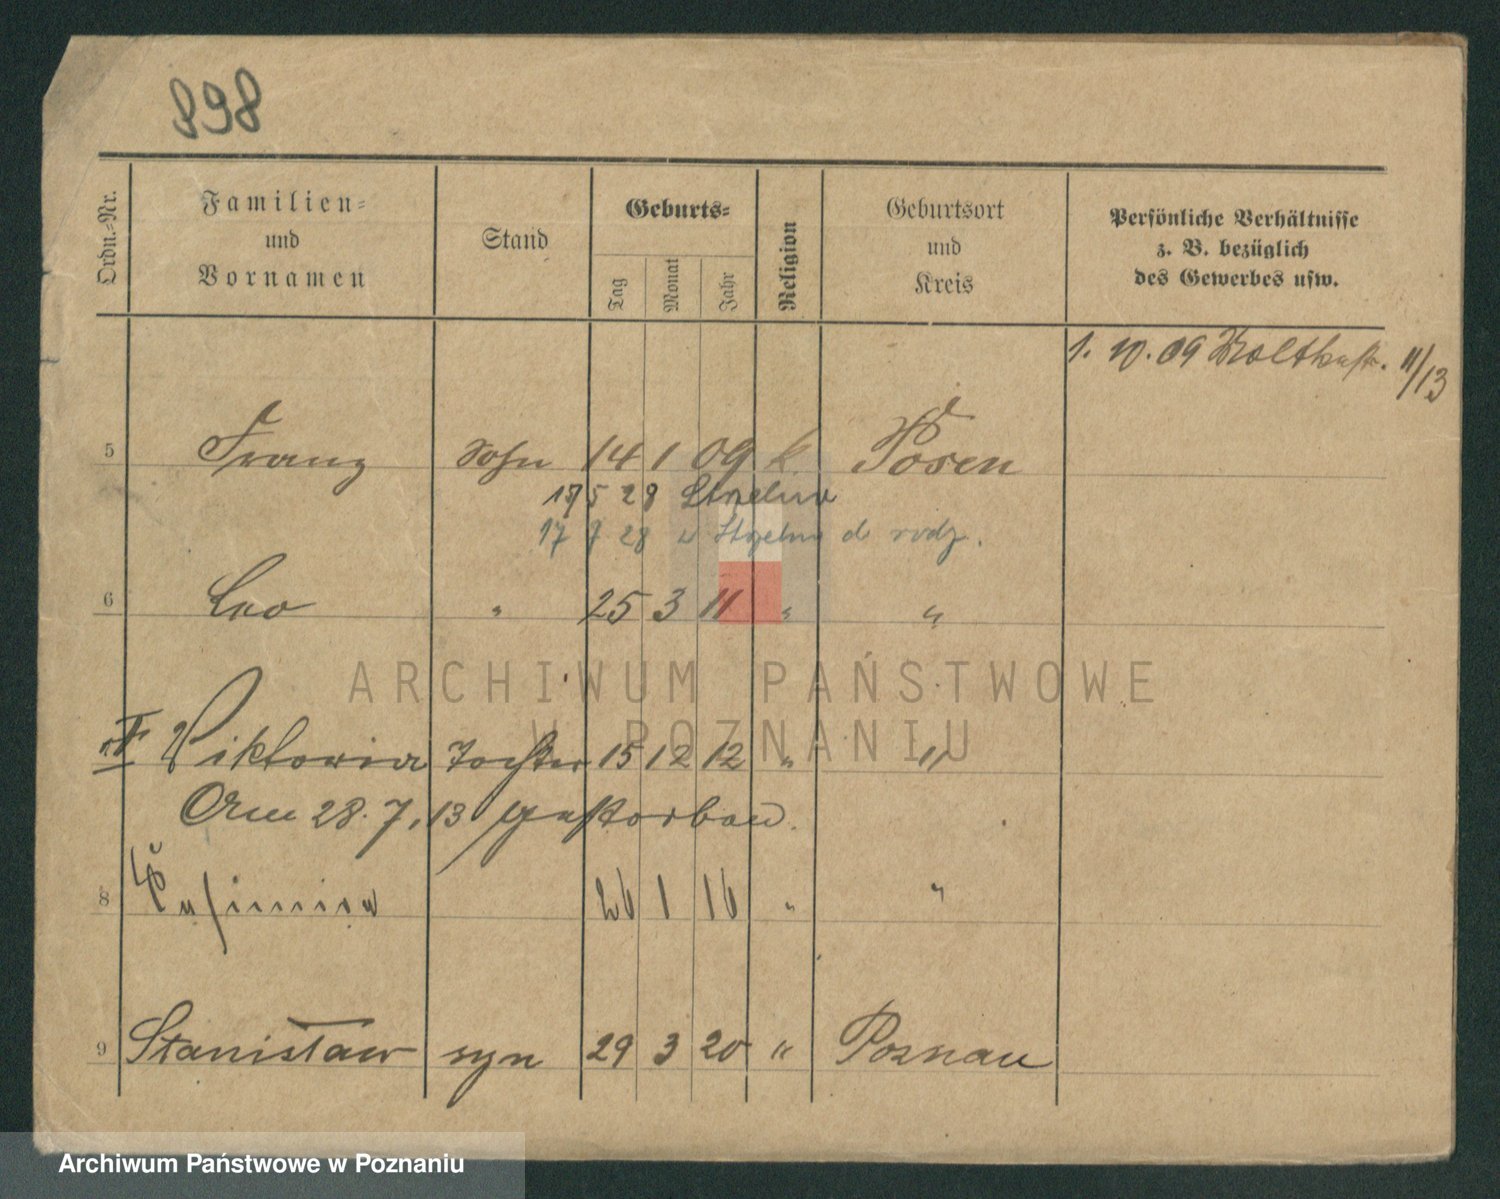 898
Ordn.-Nr.
Familien-
und
Vornamen
Stand
Geburts-
Tag
Monat
Jahr
Religion
Geburtsort
und
Kreis
Persönliche Verhältnisse
z. B. bezüglich
des Gewerbes usw.
1. 10. 09 Moltkestr. 11/13
5 Franz Sohn 14 1 09 k. Posen
5 28 Strzelno
17 7 28 w Strzelno do rodz.
6 Leo " 25 3 11 " "
Viktoria Tochter 15 12 12 " "
Am 28. 7. 13 gestorben.
8 Kasimira 26 1 16 " "
9 Stanisław syn 29 3 20 " Poznań
ARCHIWUM PAŃSTWOWE
W POZNANIU
Archiwum Państwowe w Poznaniu